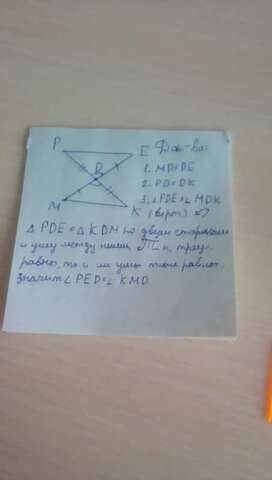 P
E
Док-во:
D
1. MD=DE
2. PD=DK
3. ∠PDE=∠MDK
M
K
(верт) ⇒
△ PDE = △ KDM по двум сторонам
и углу между ними, Т. к. треуг.
равны, то и их углы тоже равны.
Значит ∠ PED=∠ KMD